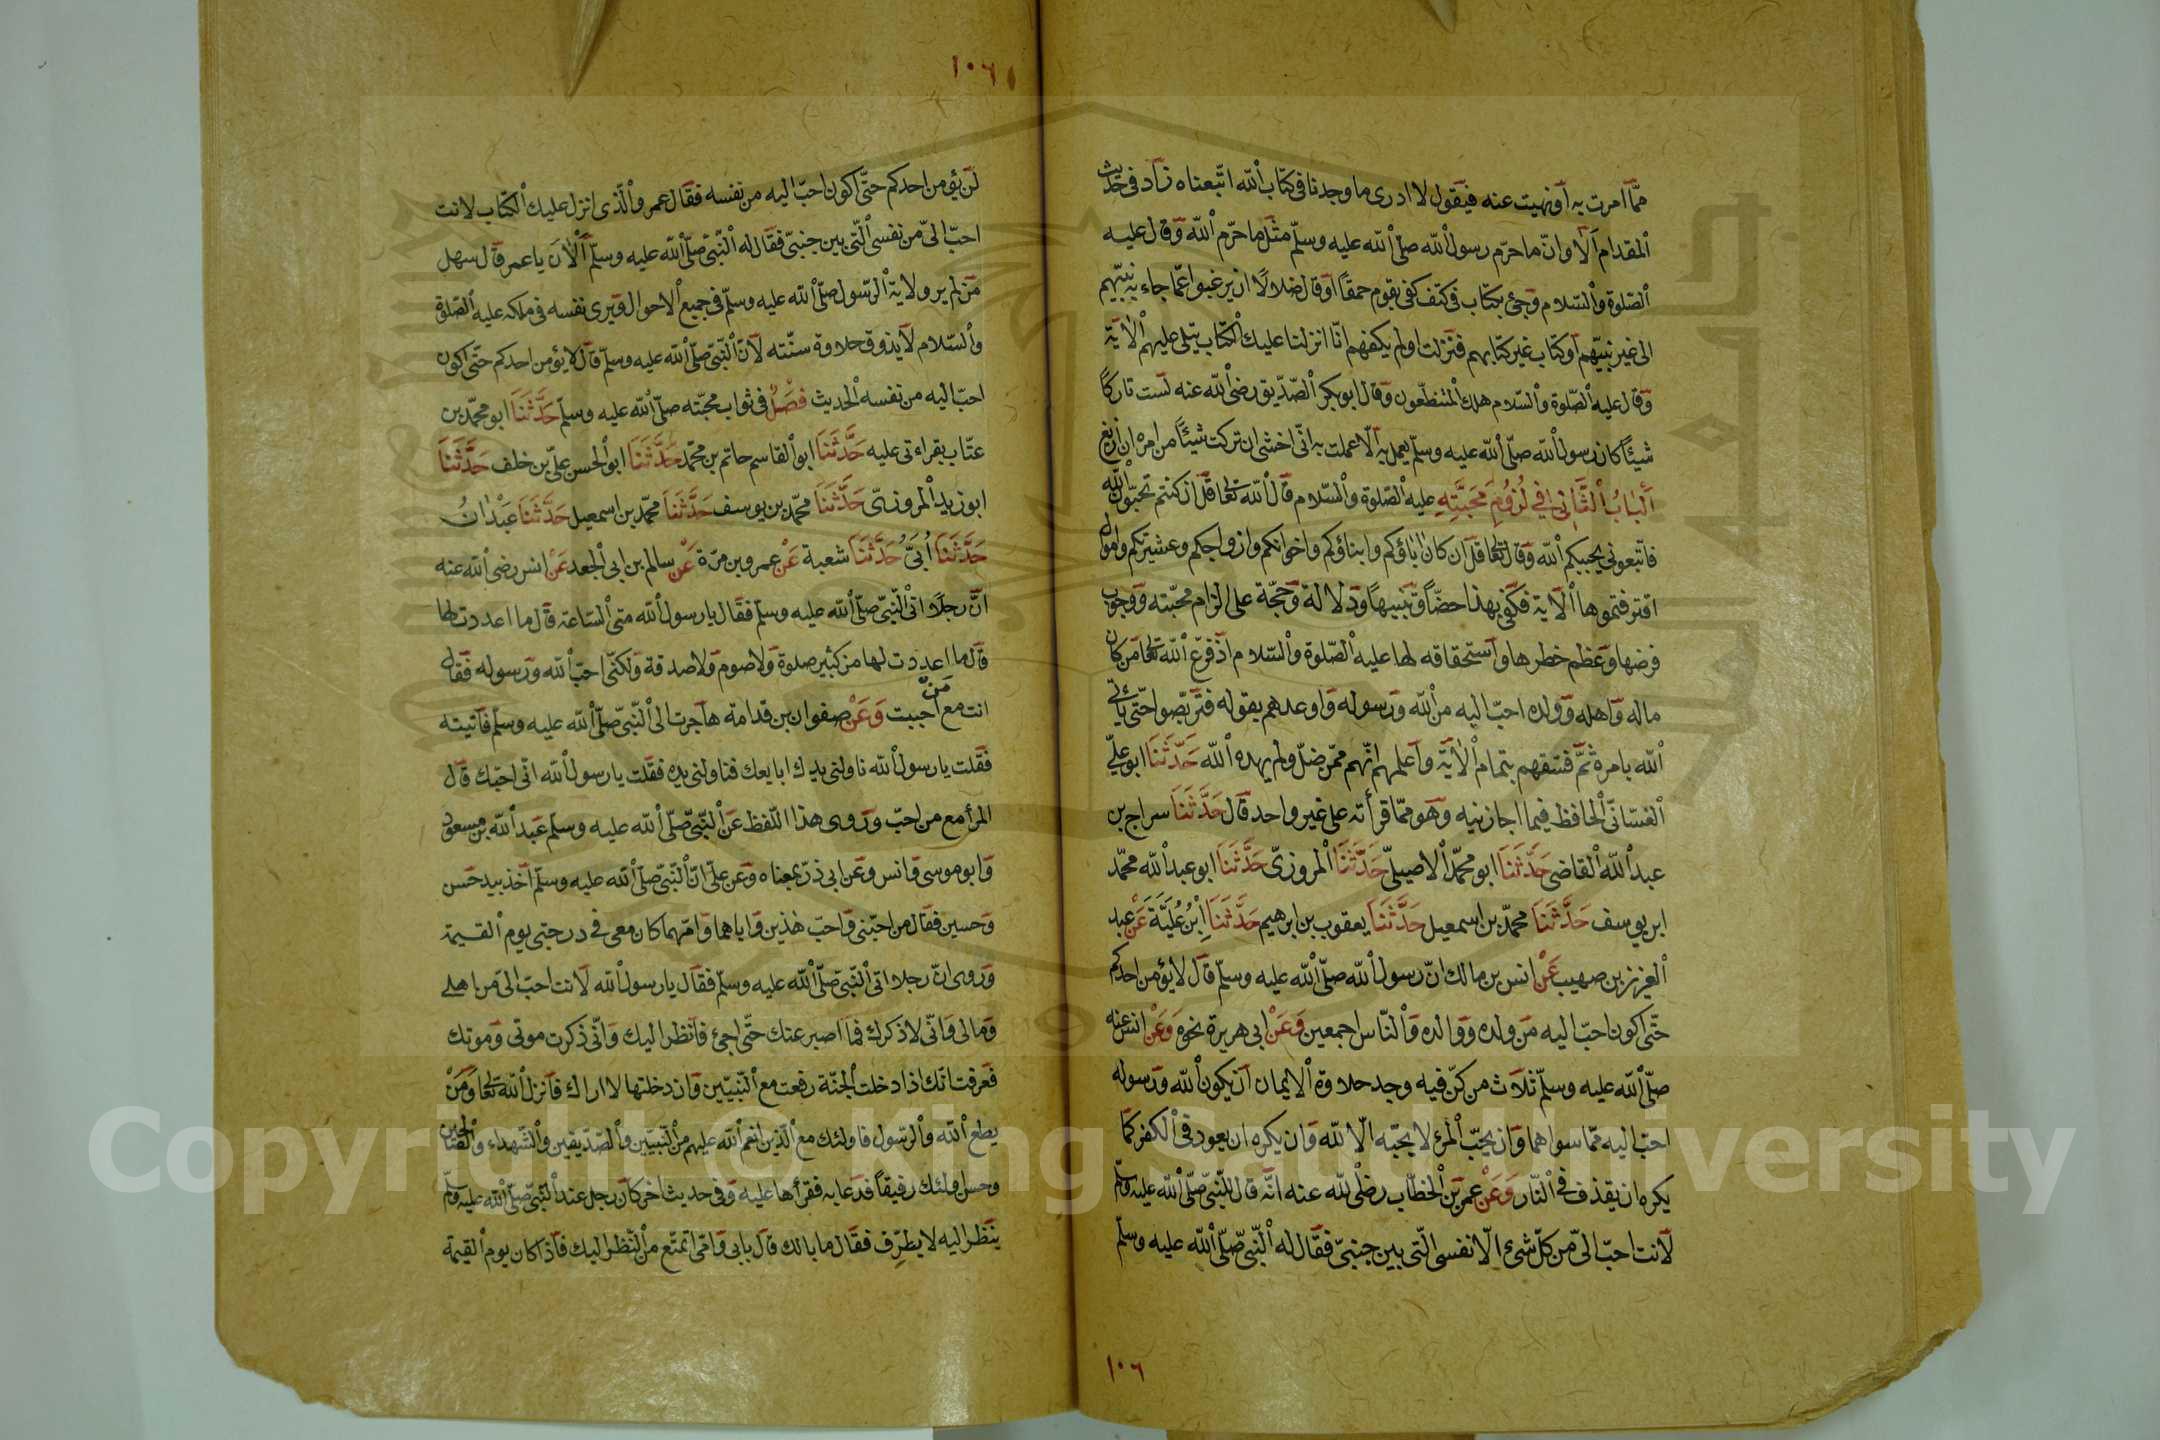 ممّا امرت به او نهيت عنه فيقول لا ادرى ما وجدنا فى كتاب الله اتّبعناه زاد فى حديث
المقدام الا وانّ ما حرّم رسول الله صلّى الله عليه وسلّم مثل ما حرّم الله وقال عليه
الصّلوة والسّلام وجئ بكتاب فى كتف كفى بقوم حمقًا او قال ضلالًا ان يرغبوا عمّا جاء به نبيّهم
الى غير نبيّهم او كتاب غير كتابهم فنزلت اولم يكفهم انّا انزلنا عليك الكتاب يتلى عليهم الاية
وقال عليه الصّلوة والسّلام هلك المتنطّعون وقال ابو بكر الصّدّيق رضى الله عنه لست تاركًا
شيئًا كان رسول الله صلّى الله عليه وسلّم يعمل به الّا عملت به انّى اخشى ان تركت شيئًا من امره ان ازيغ
اَلْبَابُ الثَّانِى فِى لُزُومِ مَحَبَّتِهِ عليه الصّلوة والسّلام قال الله تعالى قل ان كنتم تحبّون الله
فاتّبعونى يحببكم الله وقال تعالى قل ان كان اباؤكم وابناؤكم واخوانكم وازواجكم وعشيرتكم واموال
اقترفتموها الاية فكفى بهذا حضًّا وتنبيهًا ودلالة وحجّة على الزام محبّته ووجوب
فرضها وعظم خطرها واستحقاقه لها عليه الصّلوة والسّلام اذ قرّع الله تعالى من كان
ماله واهله وولده احبّ اليه من الله ورسوله واوعدهم بقوله فتربّصوا حتّى يأتى
الله بامره ثمّ فسّقهم بتمام الاية واعلمهم انّهم ممّن ضلّ ولم يهده الله حَدَّثَنَا ابو علىّ
الغسّانىّ الحافظ فيما اجازنيه وهو ممّا قرأته على غير واحد قال حَدَّثَنَا سراج بن
عبد الله القاضى حَدَّثَنَا ابو محمّد الاصيلىّ حَدَّثَنَا المروزىّ حَدَّثَنَا ابو عبد الله محمّد
ابن يوسف حَدَّثَنَا محمّد بن اسمعيل حَدَّثَنَا يعقوب بن ابرهيم حَدَّثَنَا اِبْنُ عُلَيَّةَ عَنْ عبد
العزيز بن صهيب عَنْ انس بن مالك انّ رسول الله صلّى الله عليه وسلّم قال لا يؤمن احدكم
حتّى اكون احبّ اليه من ولده ووالده والنّاس اجمعين وَعَنْ ابى هريرة نحوه وَعَنْ انس عنه
صلّى الله عليه وسلّم ثلاث من كنّ فيه وجد حلاوة الايمان ان يكون الله ورسوله
احبّ اليه ممّا سواهما وان يحبّ المرء لا يحبّه الّا لله وان يكره ان يعود فى الكفر كما
يكره ان يقذف فى النّار وَعَنْ عمر بن الخطّاب رضى الله عنه انّه قال للنّبىّ صلّى الله عليه وسلّم
لانت احبّ الىّ من كلّ شىء الّا نفسى الّتى بين جنبىّ فقال له النّبىّ صلّى الله عليه وسلّم
١٠٦
١٠٦
لن يؤمن احدكم حتّى اكون احبّ اليه من نفسه فقال عمر والّذى انزل عليك الكتاب لانت
احبّ الىّ من نفسى الّتى بين جنبىّ فقال له النّبىّ صلّى الله عليه وسلّم الْاٰنَ يا عمر قال سهل
من لم ير ولاية الرّسول صلّى الله عليه وسلّم فى جميع الاحوال ويرى نفسه فى ملكه عليه الصّلوة
والسّلام لا يذوق حلاوة سنّته لانّ النّبىّ صلّى الله عليه وسلّم قال لا يؤمن احدكم حتّى اكون
احبّ اليه من نفسه الحديث فَصْلٌ فى ثواب محبّته صلّى الله عليه وسلّم حَدَّثَنَا ابو محمّد بن
عتّاب بقراءتى عليه حَدَّثَنَا ابو القاسم حاتم بن محمّد حَدَّثَنَا ابو الحسن علىّ بن خلف حَدَّثَنَا
ابو زيد المروزىّ حَدَّثَنَا محمّد بن يوسف حَدَّثَنَا محمّد بن اسمعيل حَدَّثَنَا عَبْدَانُ
حَدَّثَنَا اُبَىُّ حَدَّثَنَا شعبة عَنْ عمرو بن مرّة عَنْ سالم بن ابى الجعد عَنْ انس رضى الله عنه
انّ رجلًا اتى النّبىّ صلّى الله عليه وسلّم فقال يا رسول الله متى السّاعة قال ما اعددت لها
قال ما اعددت لها من كثير صلوة ولا صوم ولا صدقة ولكنّى احبّ الله ورسوله فقال
انت مع مَنْ احببت وَعَنْ صفوان بن قدامة هاجرت الى النّبىّ صلّى الله عليه وسلّم فاتيته
فقلت يا رسول الله ناولنى يدك ابايعك فناولنى يده فقلت يا رسول الله انّى احبّك قال
المرأ مع من احبّ وروى هذا اللّفظ عن النّبىّ صلّى الله عليه وسلّم عبد الله بن مسعود
وابو موسى وانس وعن ابى ذرّ بمعناه وعن علىّ انّ النّبىّ صلّى الله عليه وسلّم اخذ بيد حسن
وحسين فقال من احبّنى واحبّ هذين واباهما وامّهما كان معى فى درجتى يوم القيمة
وروى انّ رجلا اتى النّبىّ صلّى الله عليه وسلّم فقال يا رسول الله لانت احبّ الىّ من اهلى
ومالى وانّى لاذكرك فما اصبر عنك حتّى اجئ فانظر اليك وانّى ذكرت موتى وموتك
فعرفت انّك اذا دخلت الجنّة رفعت مع النّبيّين وان دخلتها لا اراك فانزل الله تعالى وَمَنْ
يطع الله والرّسول فاولئك مع الّذين انعم الله عليهم من النّبيّين والصّدّيقين والشّهداء والصّالحين
وحسن اولئك رفيقًا فدعا به فقرأها عليه وفى حديث اخر كان رجل عند النّبىّ صلّى الله عليه وسلّم
ينظر اليه لا يطرِف فقال ما بالك قال بابى وامّى اتمتّع من النّظر اليك فاذا كان يوم القيمة
Copyright © King Saud University